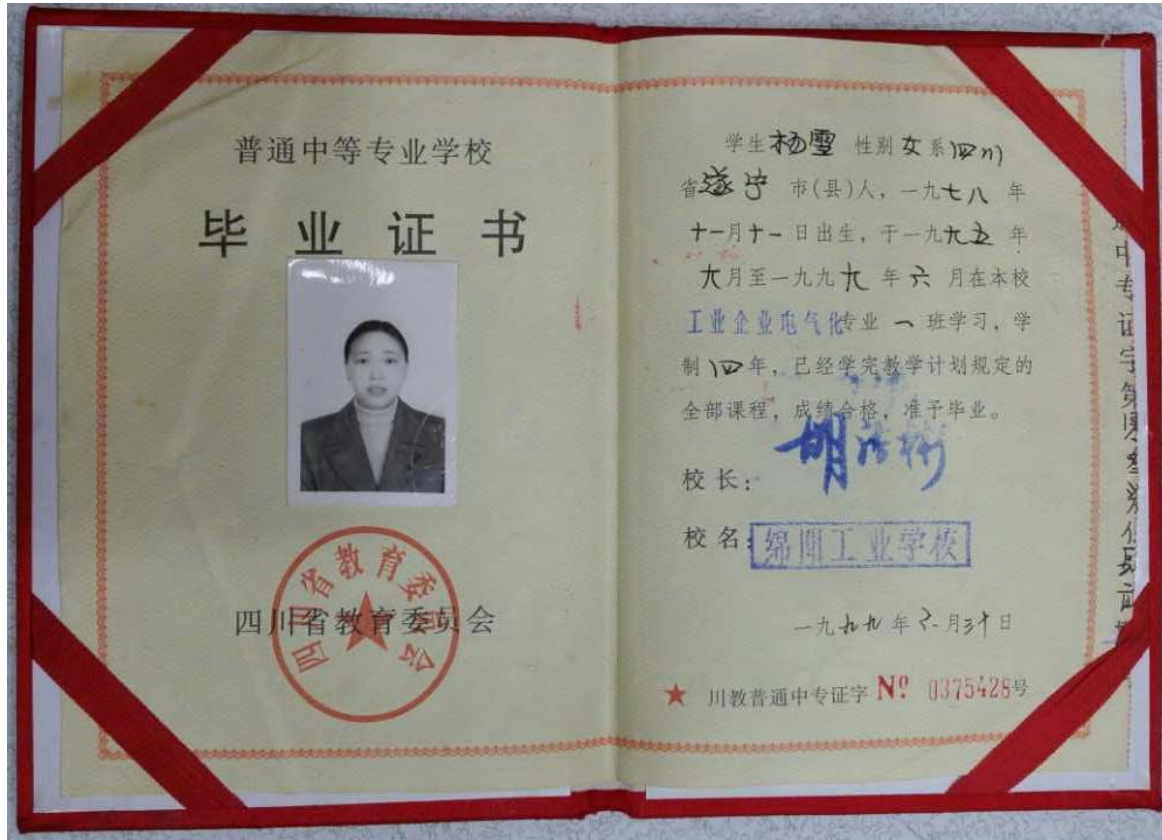 普通中等专业学校
毕业证书
四川省教育委员会
四川省教育委员会
学生杨雪 性别女系四川
省遂宁 市(县)人，一九七八 年
十一月十一日出生，于一九九五 年
九月至一九九九 年六 月在本校
工业企业电气化专业 一 班学习，学
制四年，已经学完教学计划规定的
全部课程，成绩合格，准予毕业。
校长：
校名：绵阳工业学校
一九九九年六月三十日
川教普通中专证字 Nº 0375428号
中专证字第